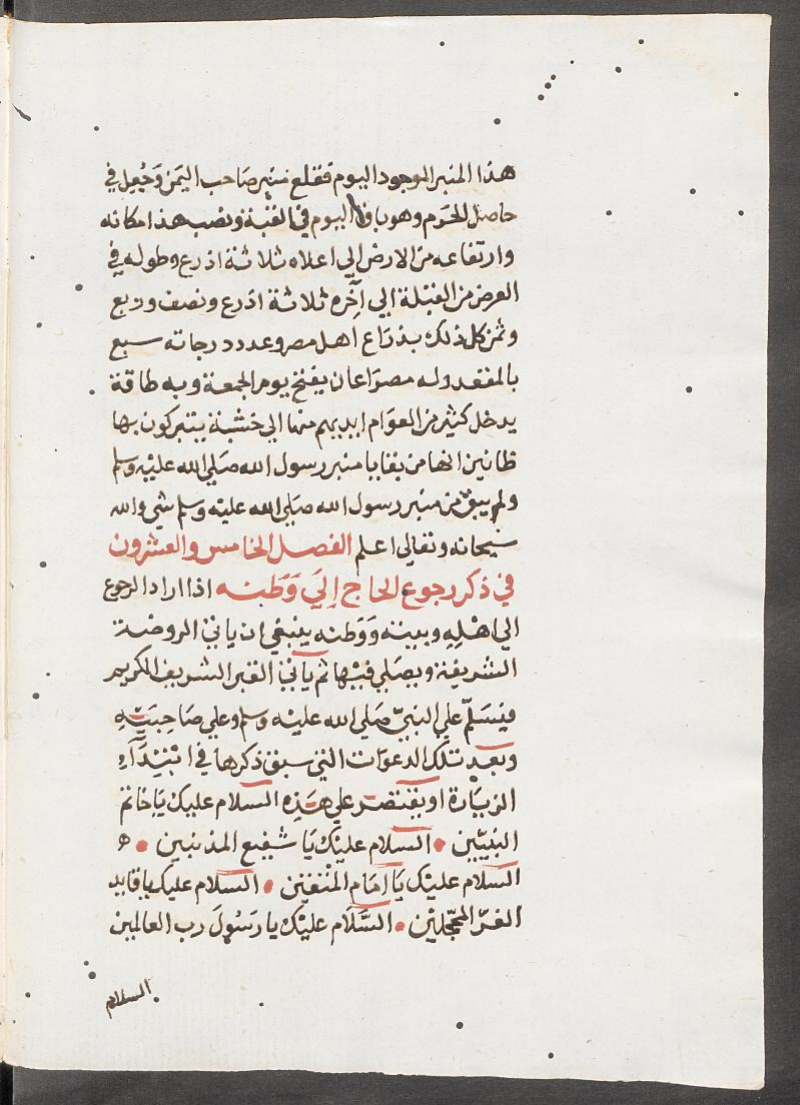 هذا المنبر الموجود اليوم فقلع منبر صاحب اليمن وَجُعِل في
حاصل الحَرَم وهو باق الى اليوم في القبة ونصب هذا مكانه
وارتفاعه من الارض الي اعلاه ثلاثة اذرع وطوله في
العرض من القبلة الي آخِره ثلاثة اذرع ونصف وربع
وثمن كل ذلك بذراع اهل مصر وعدد درجاته سبع
بالمقعد وله مصرَاعان يفتح يوم الجمعة وبه طاقة
يدخل كثير من العوَام ايديهم منها الي خشبة يتبركون بها
ظانين انها من بقايا منبر رسول الله صَلي الله عليْه وسلم
ولم يبق من منبر رسول الله صَلي الله عليْه وسلم شي والله
سبحانه وتعالي اعلم الفصل الخامس والعشرون
في ذكر رجوع الحاج إِلَي وَطَنِه اذا اراد الرجوع
الي اهْلِهِ وبيته وَوَطنه ينبغي ان ياتي الروضة
الشريفة ويصَلي فيْها ثم ياتي القبر الشريف الكريم
فيسَلمّ علي النبيّ صَلي الله عليْه وسلم وعلي صَاحِبَيْهِ
وبعد تلك الدعوَات التي سبق ذكرها في ابْتِدَآءِ
الزيَارة او يقتصر علي هَذِه السلام عليك يَا خاتم
النبيّين • السلام عليْك يَا شفيع المذنبين • ه
السلام عليْك يَا إمَام المتقين • السلام عليك يا قايد
الغرّ المحجّلين • السَّلَام عليْك يا رسُولَ رب العالمين
السلام